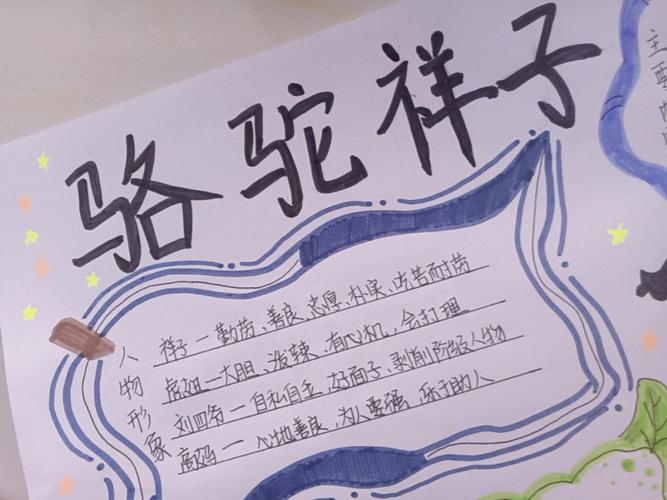 骆驼祥子
人物形象
祥子一勤劳、善良、忠厚、朴实、吃苦而耐劳
虎妞一大胆、泼辣、有心机、会打理
刘四爷一自私自金、好面子、剥削阶级人物
高妈一心地善良、为人要强、乐于助人
主要